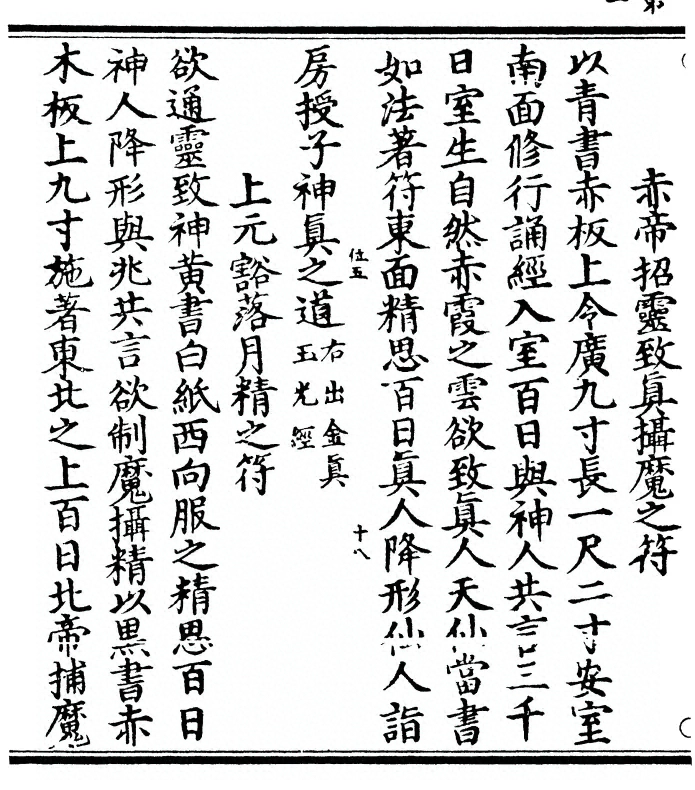 赤帝招靈致眞攝魔之符
以青書赤板上令廣九寸長一尺二寸安室
南面修行誦經入室百日與神人共言三千
日室生自然赤霞之雲欲致眞人天仙當書
如法著符東面精思百日眞人降形仙人詣
位五
十八
房授子神眞之道右出金眞玉光經
上元豁落月精之符
欲通靈致神黃書白紙西向服之精思百日
神人降形與兆共言欲制魔攝精以黑書赤
木板上九寸施著東北之上百日北帝捕魔